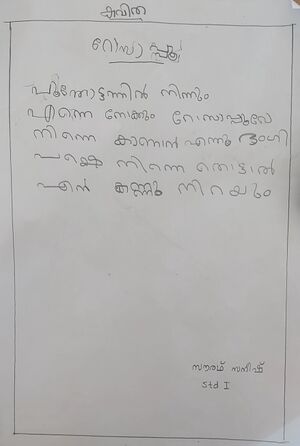 കവിത
റോസാപ്പൂ
പൂന്തോട്ടത്തിൽ നിന്നും
എന്നെ നോക്കും റോസാപ്പൂവേ
നിന്നെ കാണാൻ എന്തു ഭംഗി
പക്ഷെ നിന്നെ തൊട്ടാൽ
എൻ കണ്ണു നിറയും
സൗരഭ് സനീഷ്
Std I